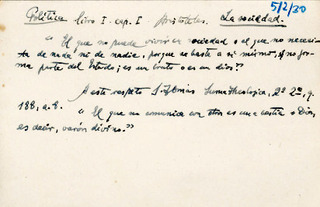 5/2/30
Política libro I. cap. I Aristóteles. La sociedad.
"El que no puede vivir en sociedad o el que no necesi-
ta de nada ni de nadie, porque se basta a si mismo, y no for-
ma parte del Estado; es un bruto o es un dios."
A este respeto S. Tomás Suma theologica, 2ª 2ae, q.
188, a. 8. "El que no comunica con otros es una bestia o Dios,
es decir, varón divino."